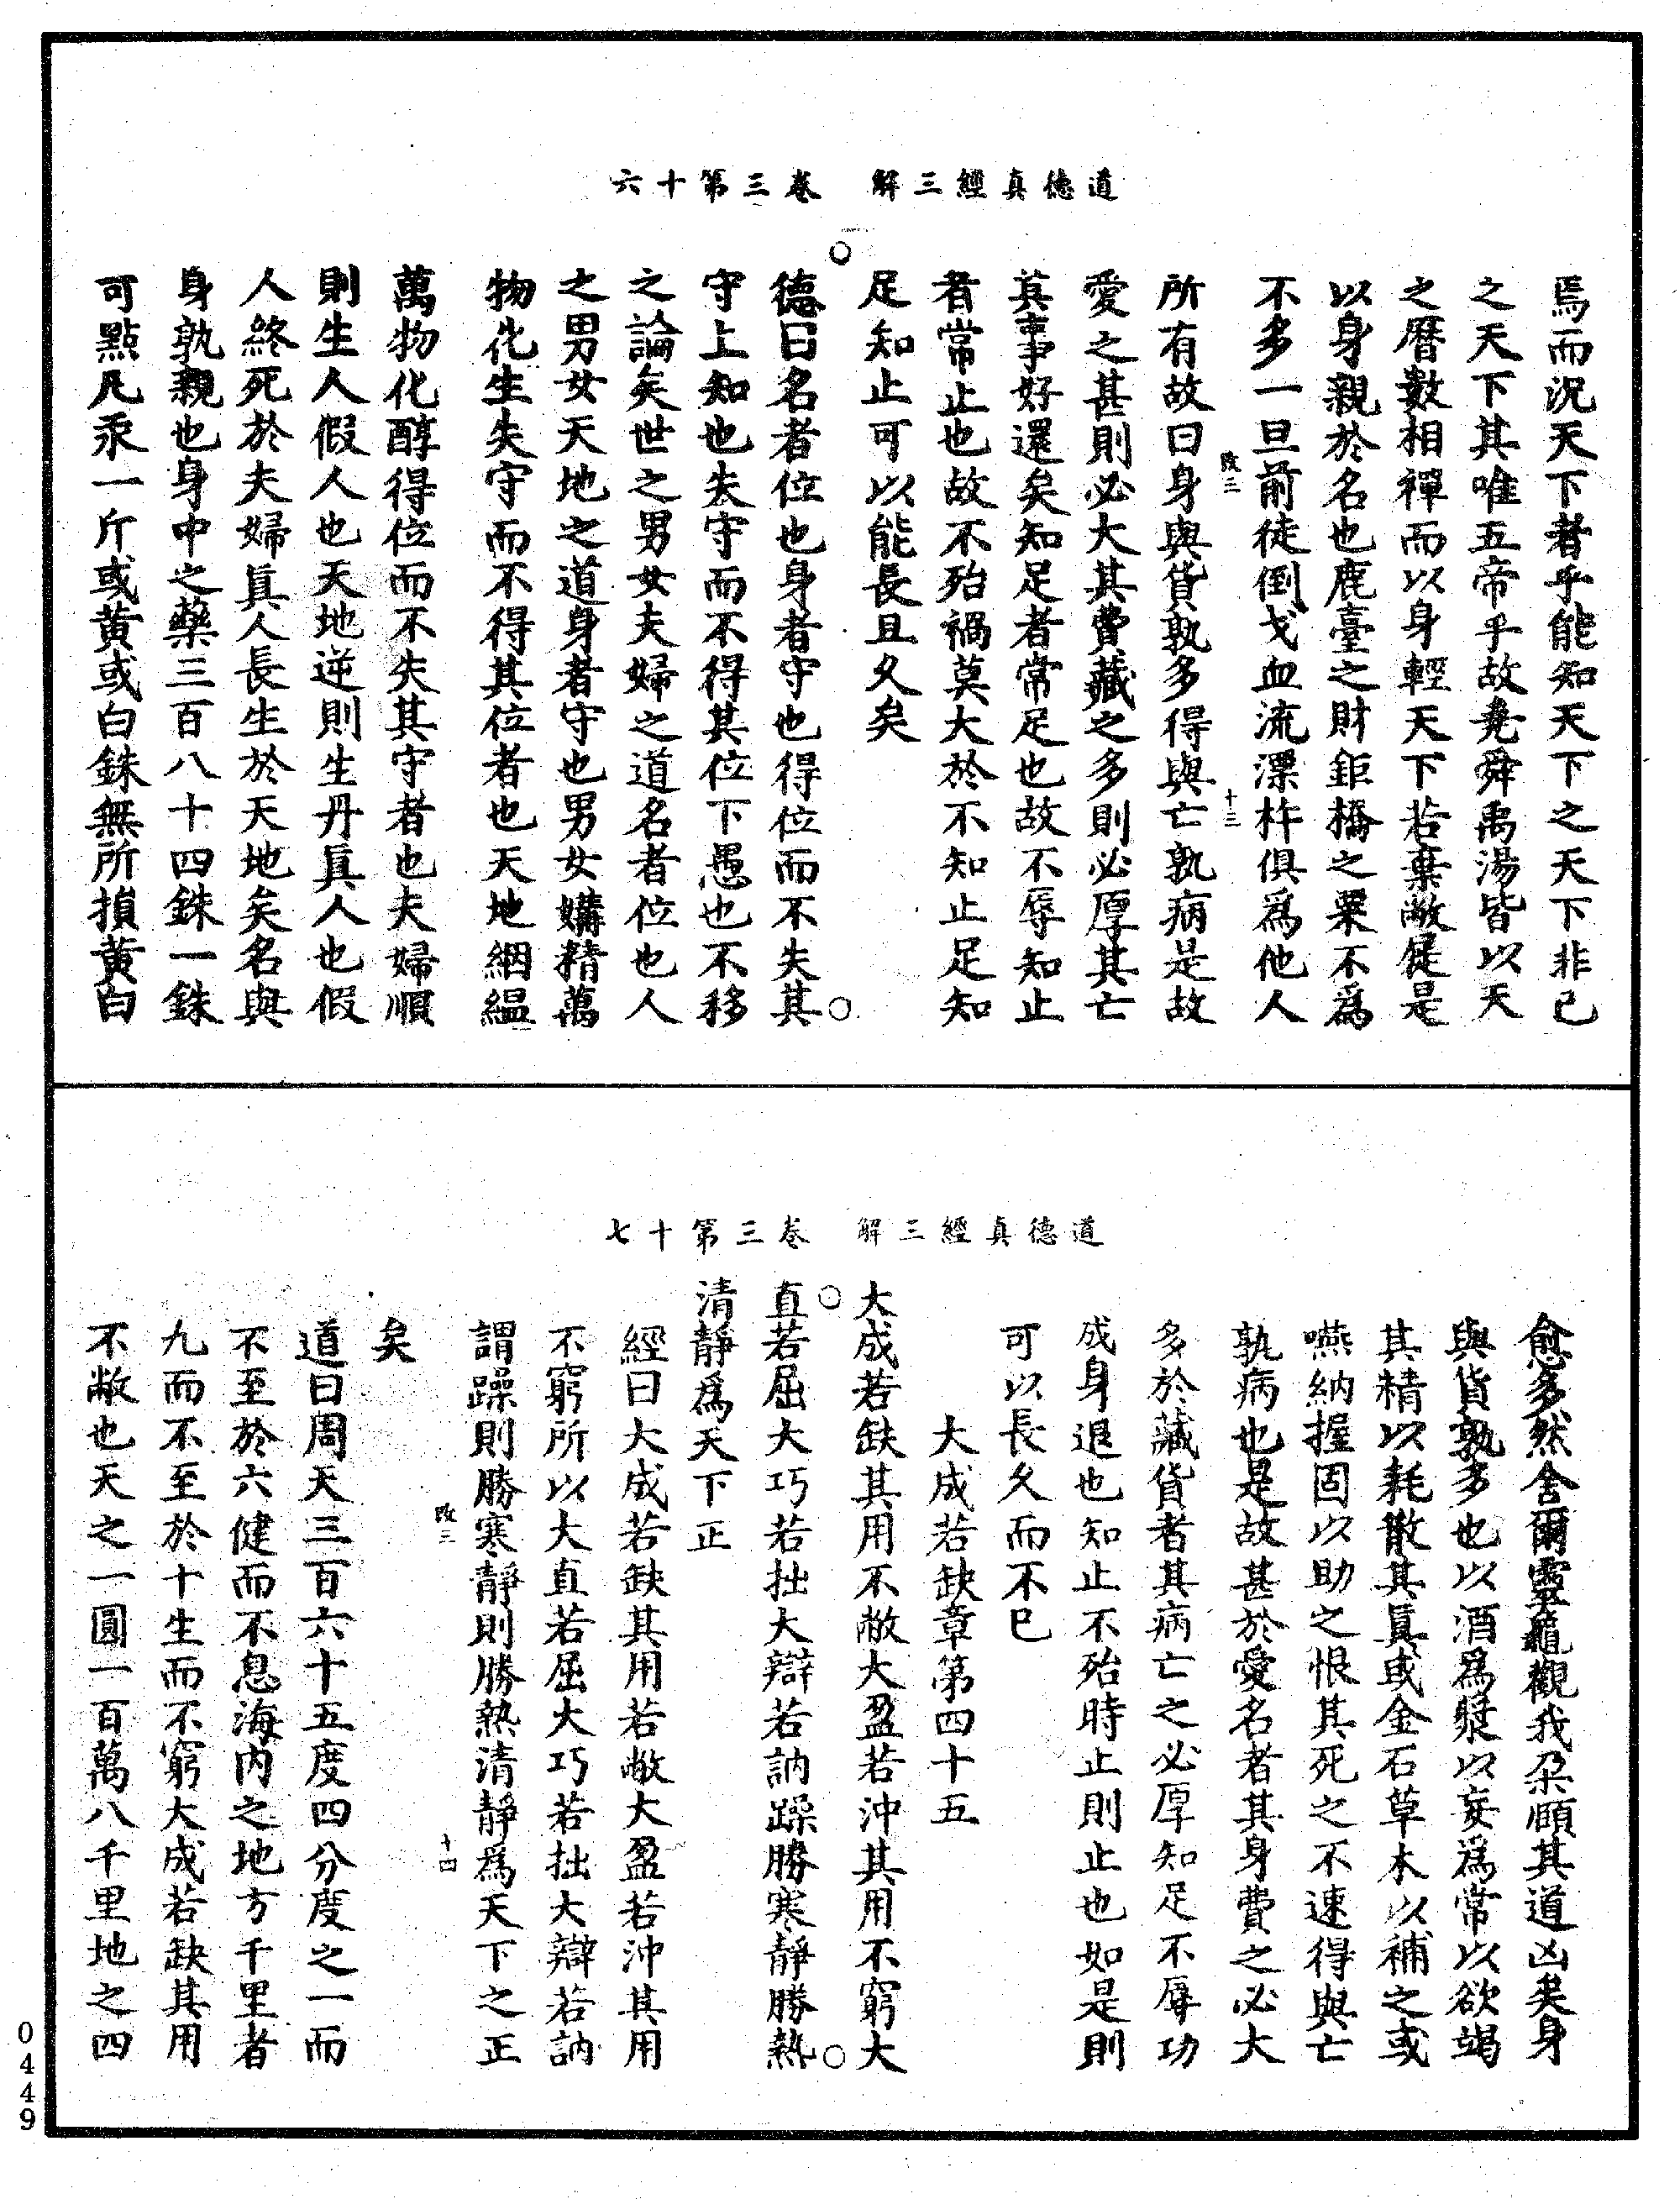 道德真經三解　卷三第十六
焉而況天下者乎能知天下之天下非己
之天下其唯五帝乎故堯舜禹湯皆以天
之曆數相禪而以身輕天下若棄敝屣是
以身親於名也鹿臺之財鉅橋之粟不爲
不多一旦前徒倒戈血流漂杵俱爲他人
改三　十三
所有故曰身與貨孰多得與亡孰病是故
愛之甚則必大其費藏之多則必厚其亡
其事好還矣知足者常足也故不辱知止
者常止也故不殆禍莫大於不知止足知
足知止可以能長且久矣
德曰名者位也身者守也得位而不失其
守上知也失守而不得其位下愚也不移
之論矣世之男女夫婦之道名者位也人
之男女天地之道身者守也男女媾精萬
物化生失守而不得其位者也天地絪縕
萬物化醇得位而不失其守者也夫婦順
則生人假人也天地逆則生丹眞人也假
人終死於夫婦眞人長生於天地矣名與
身孰親也身中之藥三百八十四銖一銖
可點凡汞一斤或黃或白銖無所損黃白
道德真經三解　卷三第十七
愈多然舍爾靈龜觀我朶頤其道凶矣身
與貨孰多也以酒爲漿以妄爲常以欲竭
其精以耗散其眞或金石草木以補之或
嚥納握固以助之恨其死之不速得與亡
孰病也是故甚於愛名者其身費之必大
多於藏貨者其病亡之必厚知足不辱功
成身退也知止不殆時止則止也如是則
可以長久而不已
大成若缺章第四十五
大成若缺其用不敝大盈若沖其用不窮大
直若屈大巧若拙大辯若訥躁勝寒靜勝熱
清靜爲天下正
經曰大成若缺其用若敝大盈若沖其用
不窮所以大直若屈大巧若拙大辯若訥
謂躁則勝寒靜則勝熱清靜爲天下之正
改三　十四
矣
道曰周天三百六十五度四分度之一而
不至於六健而不息海内之地方千里者
九而不至於十生而不窮大成若缺其用
不敝也天之一圓一百萬八千里地之四
0449